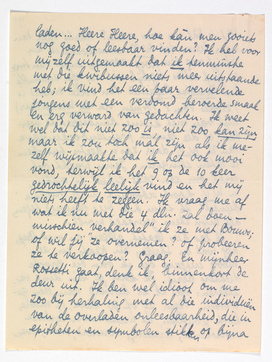 laden... Heere Heere, hoe kán men zooiets
nog goed of leesbaar vinden? Ik heb voor
mijzelf uitgemaakt dat ik tenminste
met die kwibussen niets meer uitstaande
heb; ik vind het een paar vervelende
jongens met een verdomd beroerde smaak
en erg verward van gedachten. Ik weet
wel dat dit niet zoo is, niet zoo kan zijn,
maar ik zou toch mal zijn als ik me-
zelf wijsmaakte dat ik het ook mooi
vond, terwijl ik het 9 op de 10 keer
gedrochtelijk leelijk vind en het mij
niets heeft te zeggen. Ik vraag me af
wat ik nu met die 4 dln.
misschien verhandel" ik ze met Bouws,
of wel hij ze overnemen? of probeeren
ze te verkoopen? Vraag. En mijnheer
Rossetti gaat, denk ik, binnenkort de
deur uit. Ik ben wel idioot om me
zoo bij herhaling met al die individuën
van de overladen onleesbaarheid, die in
epitheten en symbolen stikken, op bijna